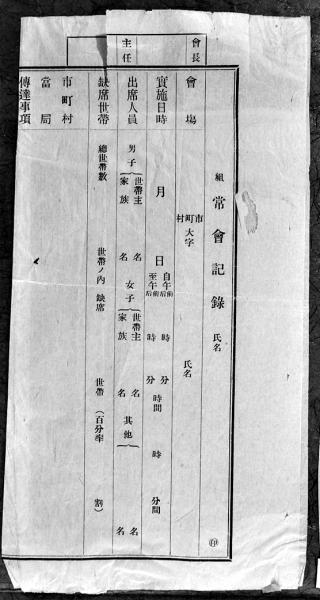 會長
主任
組常會記錄 氏名 ㊞
會場 市町村大字 氏名
實施日時 月 日 自午前后 時 分 至午前后 時 分 時間 時 分間
出席人員 男子 世帶主 名 家族 名 女子 世帶主 名 家族 名 其他 名 名
缺席世帶 總世帶數 世帶ノ内缺席 世帶(百分率 割)
市町村
當局
傳達事項